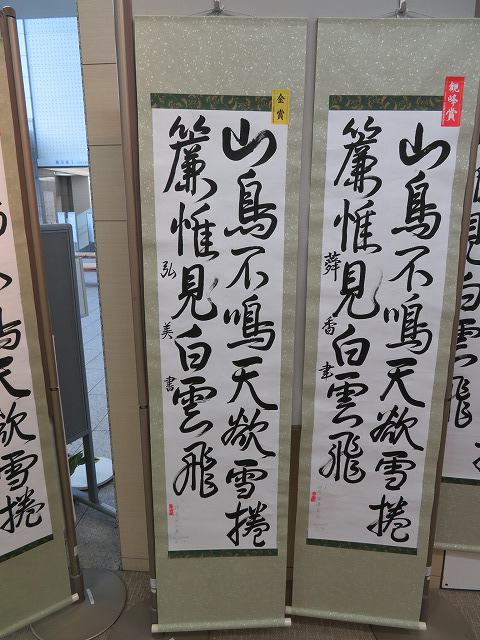 観峰賞
山鳥不鳴天欲雪捲
簾惟見白雲飛
舜香書
金賞
山鳥不鳴天欲雪捲
簾惟見白雲飛
弘美書
天欲雪捲
見白雲飛